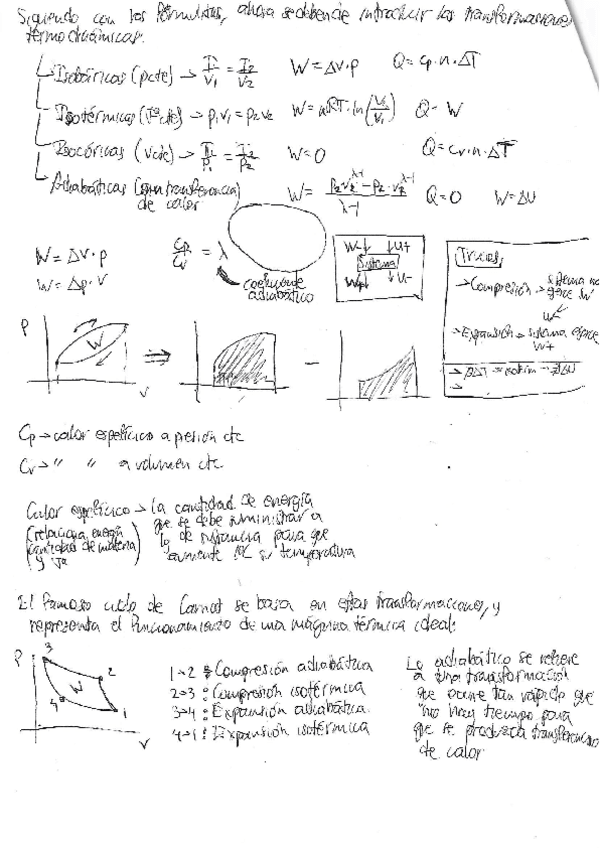 Siguiendo con las fórmulas, ahora se deben de introducir las transformaciones
termodinámicas.
Isobáricas (p cte) → T₁/V₁ = T₂/V₂ W = ΔV·p Q = Cp·n·ΔT
Isotérmicas (Tª cte) → p₁V₁ = p₂V₂ W = nRT·ln(V₂/V₁) Q = W
Isocóricas (V cte) → T₁/p₁ = T₂/p₂ W = 0 Q = Cv·n·ΔT
Adiabáticas (sin transferencia
de calor) Q = 0 W = ΔU
W = ΔV·p
W = Δp·V
Cp/Cv = λ
coeficiente
adiabático
W- U+
Sistema
W+ U-
Trucos
→ Compresión → sistema no
W-
→ Expansión → sistema ejerce
W+
P
W
V
⇒
−
Cp → calor específico a presión cte
Cv → " " a volumen cte
Calor específico → la cantidad de energía
(relaciona energía
cantidad de materia
y Tª)
que se debe suministrar a
1g de sustancia para que
aumente 1ºC su temperatura
El famoso ciclo de Carnot se basa en estas transformaciones, y
representa el funcionamiento de una máquina térmica ideal:
P
3
2
W
4
1
V
1→2: Compresión adiabática
2→3: Compresión isotérmica
3→4: Expansión adiabática
4→1: Expansión isotérmica
Lo adiabático se refiere
a una transformación
que ocurre tan rápido que
no hay tiempo para
que se produzca transferencia
de calor